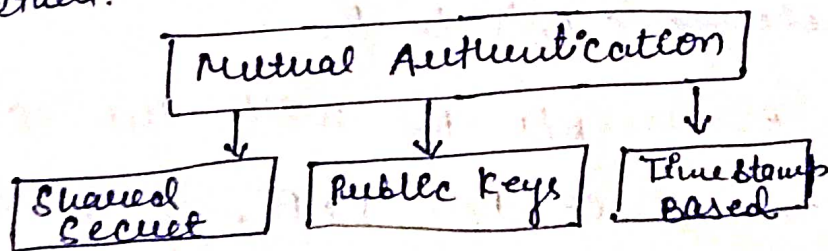 Mutual Authentication
Shared
Secret
Public Keys
Timestamp
Based